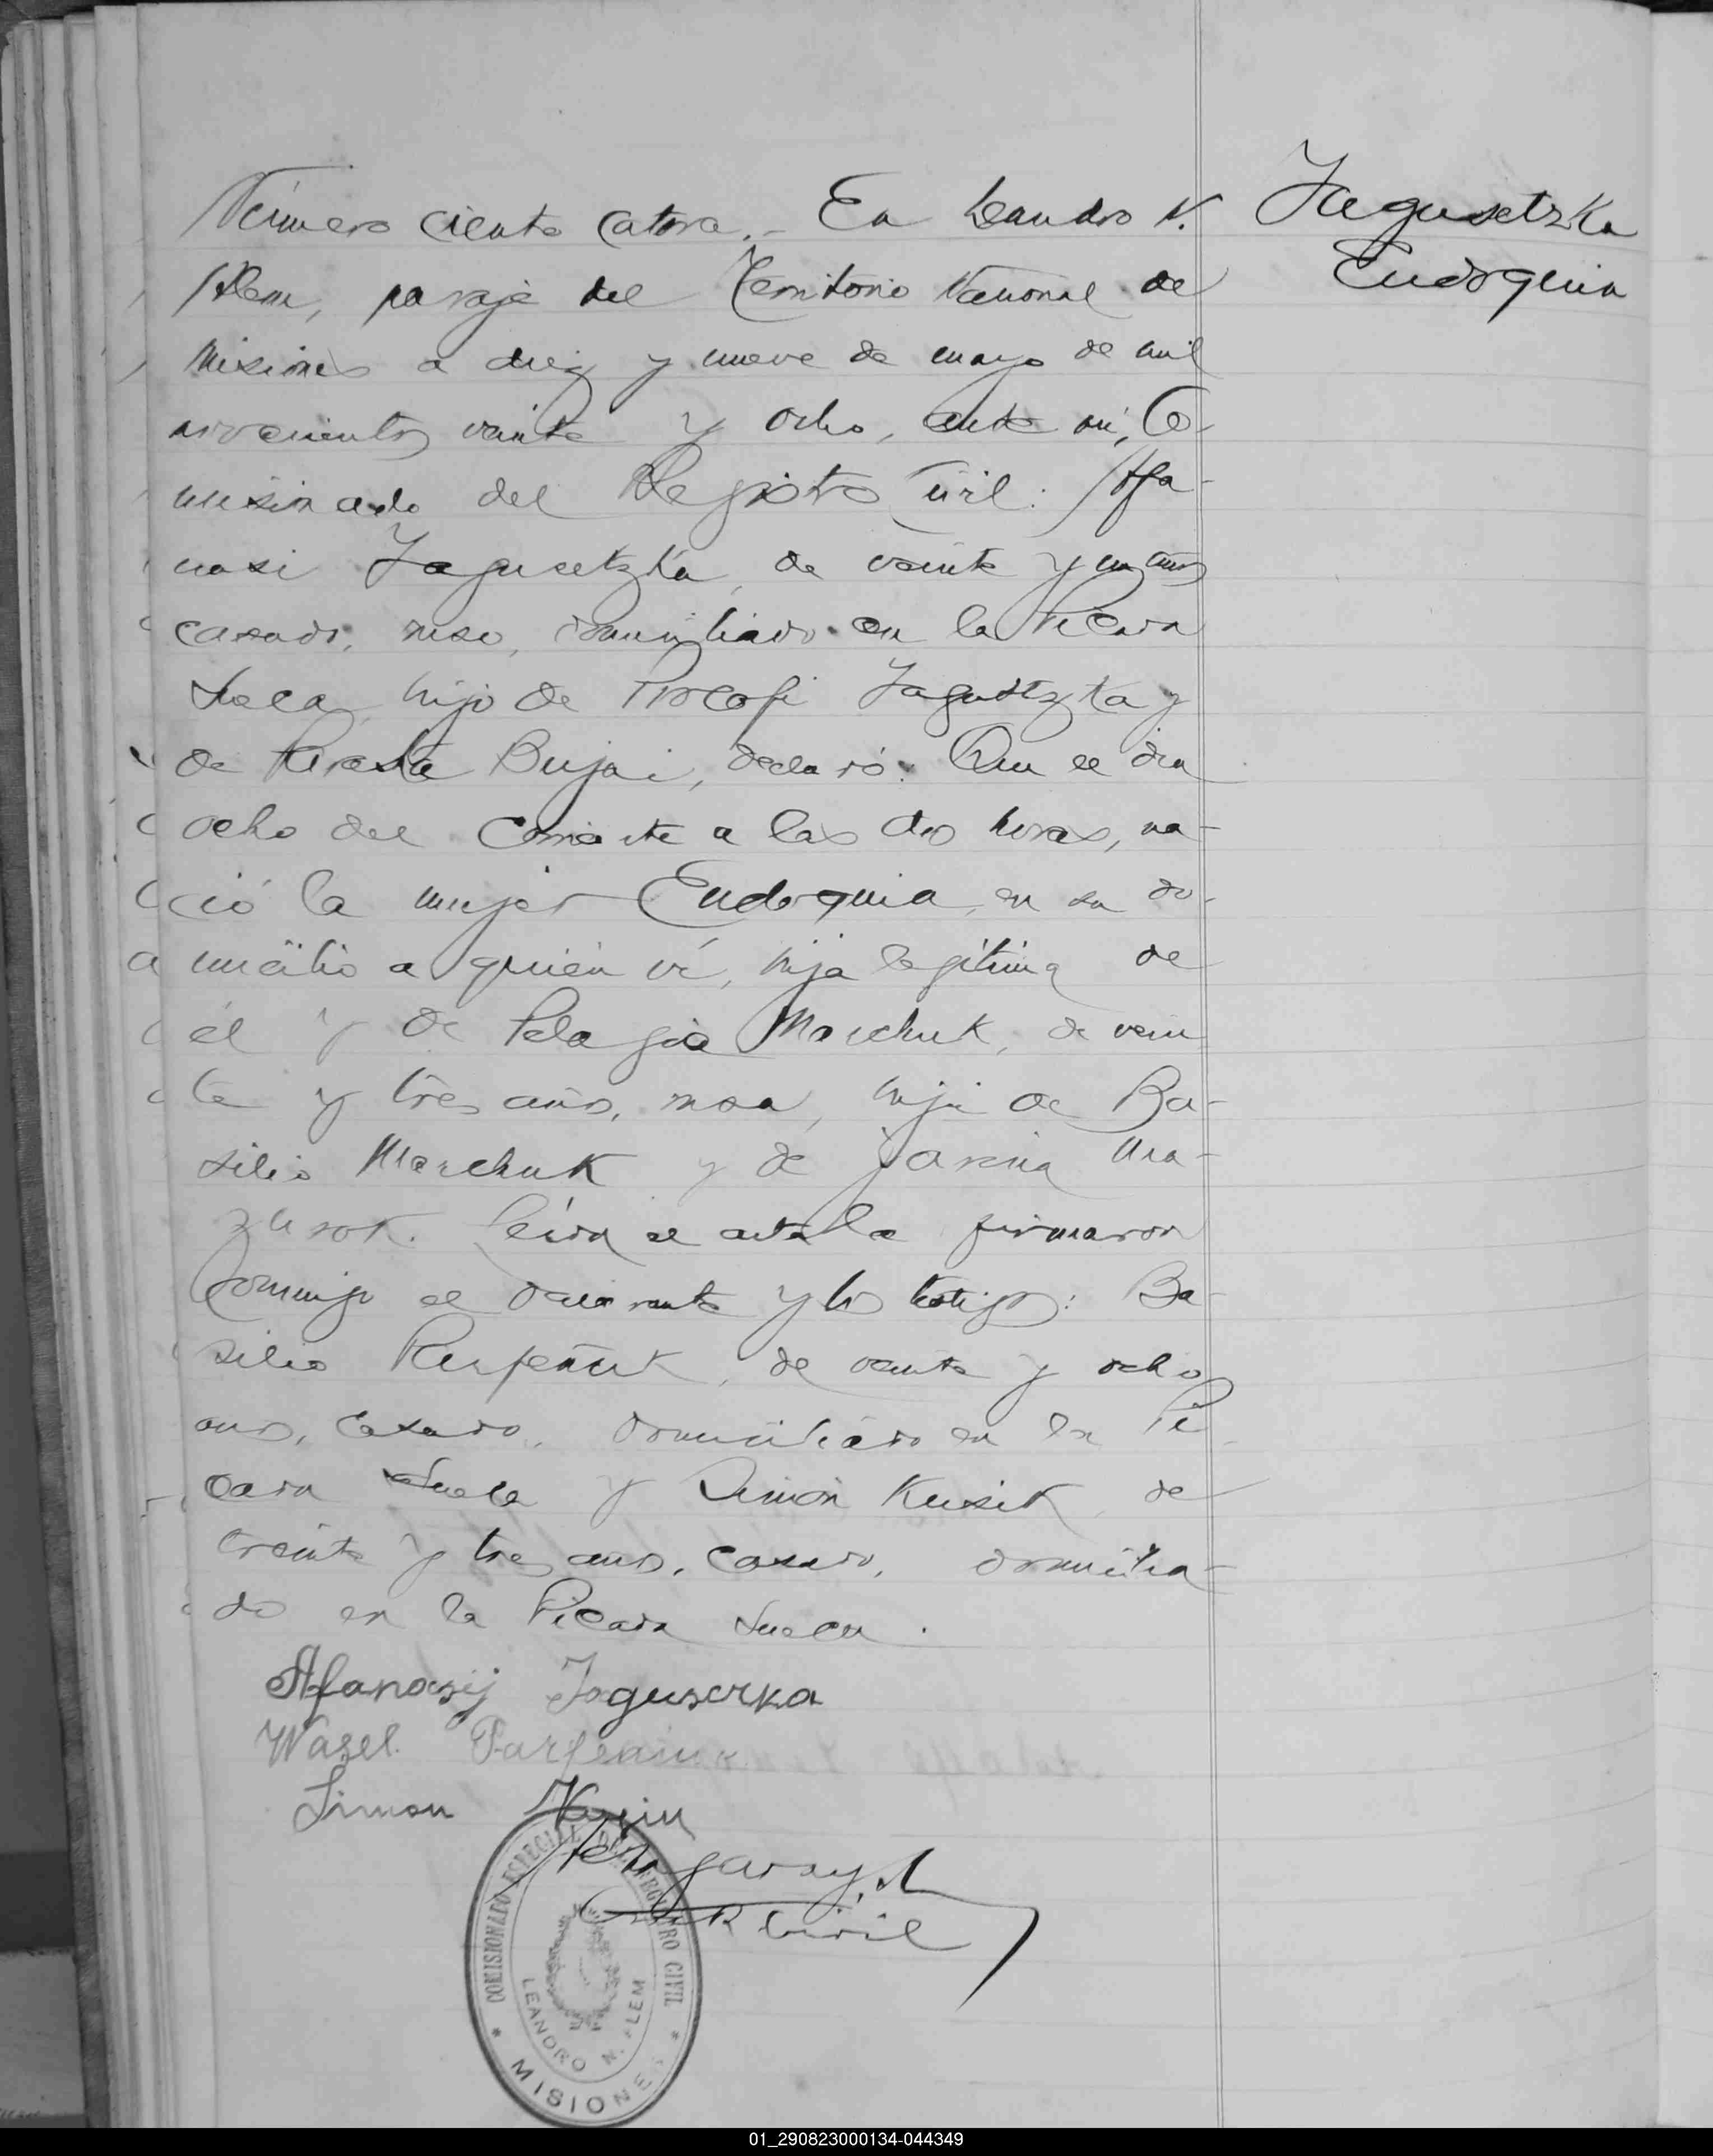 Número ciento catorce.- En Leandro N.
Alem, paraje del Territorio Nacional de
Misiones a diez y nueve de mayo de mil
novecientos veinte y ocho, ante mí, Co-
misionado del Registro Civil: Afa-
nasi Jagusetzka, de veinte y un años
casado, ruso, domiciliado en la Picada
Sueca, hijo de Procofi Jagusetzka y
de Bujai, declaró: Que el día
ocho del corriente a las dos horas, na-
ció la mujer Eudoquia, en su do-
micilio a quién ví, hija legítima de
él y de Pelagia Marchuk, de vein
te y tres años, rusa, hija de Ba-
silio Marchuk y de
Leída el acta la firmaron
conmigo el declarante y los testigos: Ba-
silio de veinte y ocho
años, casado, domiciliado en la Pi
cada Sueca y Simón Kusik, de
treinta y tres años, casado, domicilia-
do en la Picada Sueca.
Jagusetzka
Eudoquia
Afanasij Jagusczka
Wasel Parfeniuk
Simon
R Civil
COMISIONADO ESPECIAL DEL REGISTRO CIVIL
LEANDRO N. ALEM
* MISIONES *
01_290823000134-044349